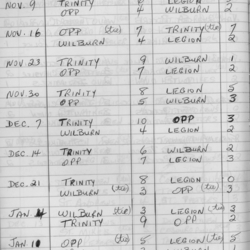 NOV. 9 TRINITY 8 LEGION 2
OPP 4 WILBURN 2
NOV. 16 OPP (tie) 7 TRINITY (tie) 7
WILBURN 4 LEGION 2
NOV 23 TRINITY 9 WILBURN 1
OPP 7 LEGION 2
NOV 30 TRINITY 8 LEGION 5
OPP 5 WILBURN 3
DEC. 7 TRINITY 10 OPP 3
WILBURN 4 LEGION 2
DEC. 14 TRINITY 6 WILBURN 2
OPP 7 LEGION 3
DEC. 21 TRINITY 8 LEGION 0
WILBURN (tie) 3 OPP (tie) 3
JAN 4 WILBURN (tie) 3 LEGION (tie) 3
TRINITY 9 OPP 2
JAN 10 OPP (tie) 5 LEGION (tie) 5